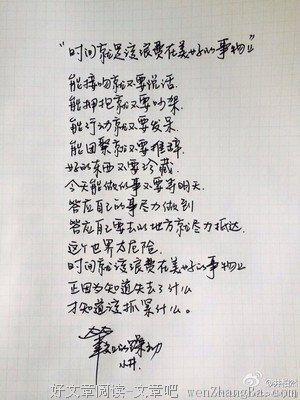 "时间就是该浪费在美好的事物上"
能接吻就不要说话
能拥抱就不要吵架
能行动就不要发呆
能团聚就不要推辞
好的东西不要珍藏
今天能做的事不要等明天
答应自己的事尽力做到
答应自己要去的地方就尽力抵达
这个世界太危险
时间就该浪费在美好的事物上
正因为知道失去了什么
才知道该抓紧什么。
好文章阅读-文章吧
wenZhangBa.com